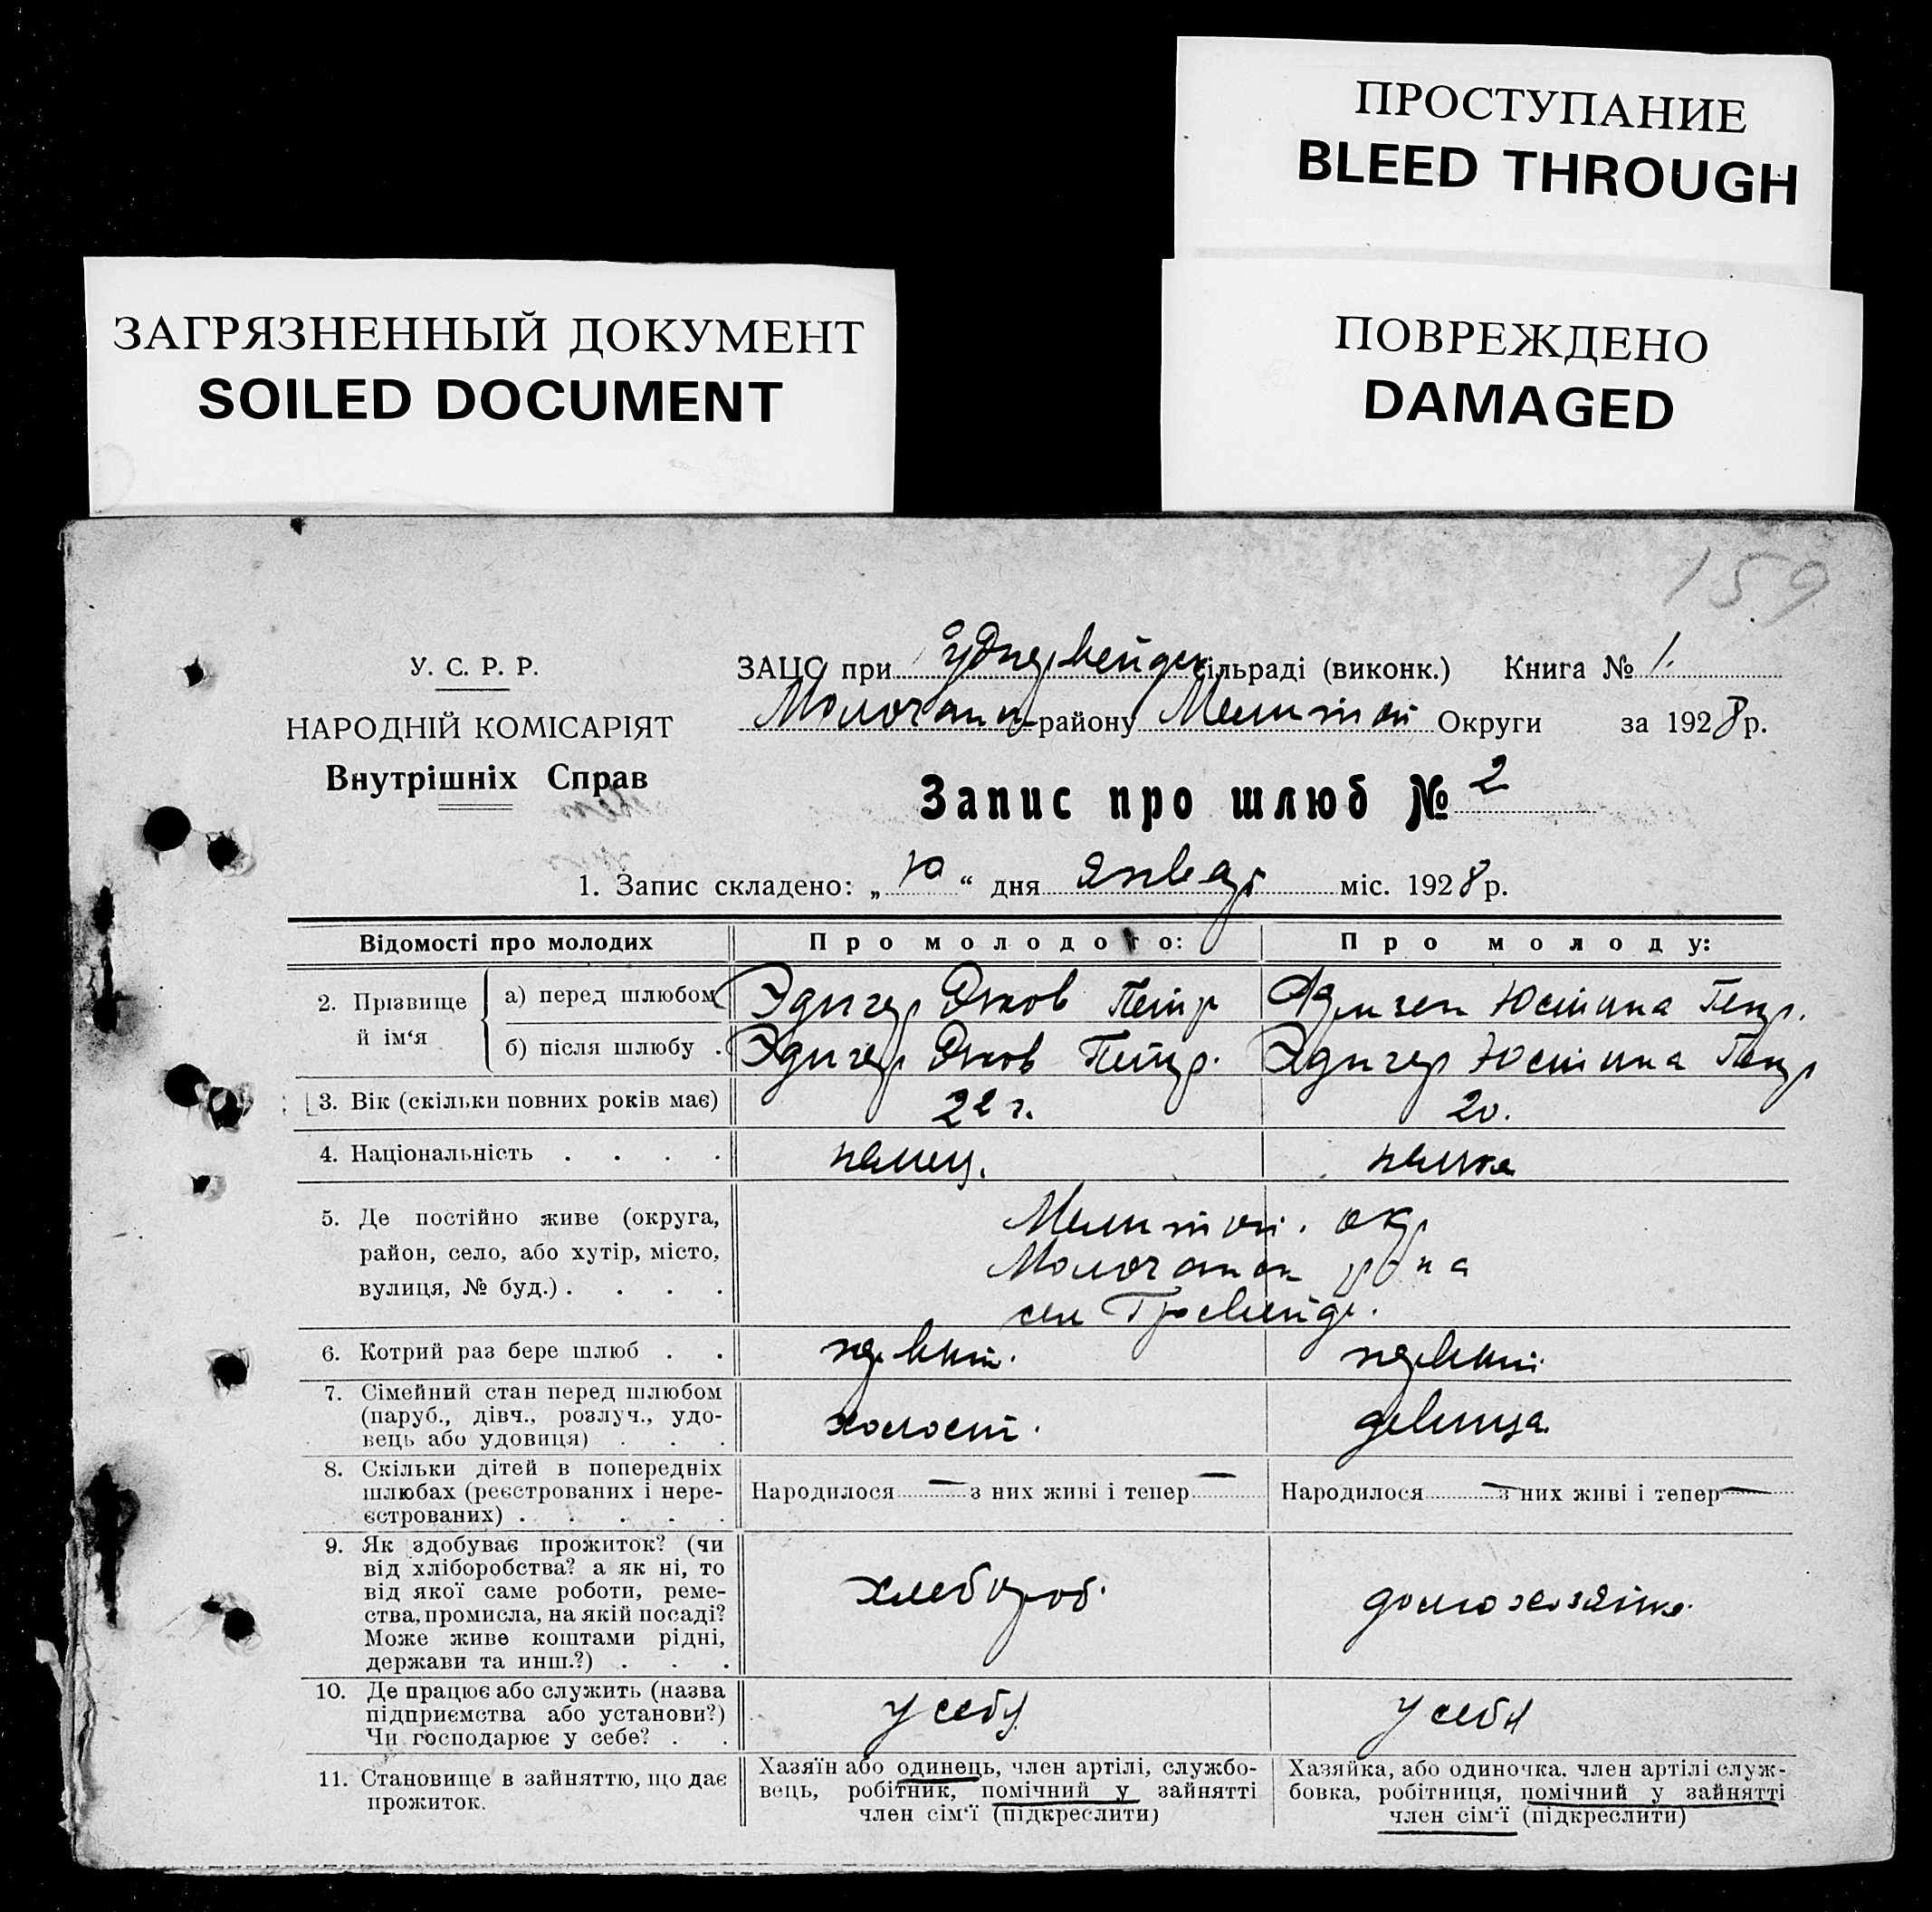 ПРОСТУПАНИЕ
BLEED THROUGH
ЗАГРЯЗНЕННЫЙ ДОКУМЕНТ
SOILED DOCUMENT
ПОВРЕЖДЕНО
DAMAGED
159
У. С. Р. Р.
НАРОДНІЙ КОМІСАРІЯТ
Внутрішніх Справ
ЗАЦС при сільраді (виконк.) Книга № 1.
района району Мелитоп Округи за 1928 р.
Запис про шлюб № 2
1. Запис складено: „10“ дня январ міс. 1928 р.
Відомості про молодих Про молодого: Про молоду:
2. Прізвище й ім‘я
а) перед шлюбом Эдигер Яков Петр Юстина Генр.
б) після шлюбу . Эдигер Яков Петр. Эдигер Юстина Генр
3. Вік (скільки повних років має) 22 г. 20.
4. Національність . . . . немец. немка
5. Де постійно живе (округа,
район, село, або хутір, місто,
вулиця, № буд.) . . . .
Мелитоп. окр
Молочанск р-на
сел Гросвейде.
6. Котрий раз бере шлюб . . первый. первый.
7. Сімейний стан перед шлюбом
(паруб., дівч., розлуч., удо-
вець або удовиця) . . .
холост. девица.
8. Скільки дітей в попередніх
шлюбах (реєстрованих і нере-
єстрованих) . . . . .
Народилося — з них живі і тепер — Народилося — з них живі і тепер —
9. Як здобуває прожиток? (чи
від хліборобства? а як ні, то
від якої саме роботи, реме-
ства, промисла, на якій посаді?
Може живе коштами рідні,
держави та инш.?) . . .
хлебороб. домохозяйка.
10. Де працює або служить (назва
підприємства або установи?)
Чи господарює у себе? . .
у себя у себя
11. Становище в зайняттю, що дає
прожиток.
Хазяїн або одинець, член артілі, службо-
вець, робітник, помічний у зайнятті
член сім‘ї (підкреслити)
Хазяйка, або одиночка, член артілі служ-
бовка, робітниця, помічний у зайнятті
член сім‘ї (підкреслити)